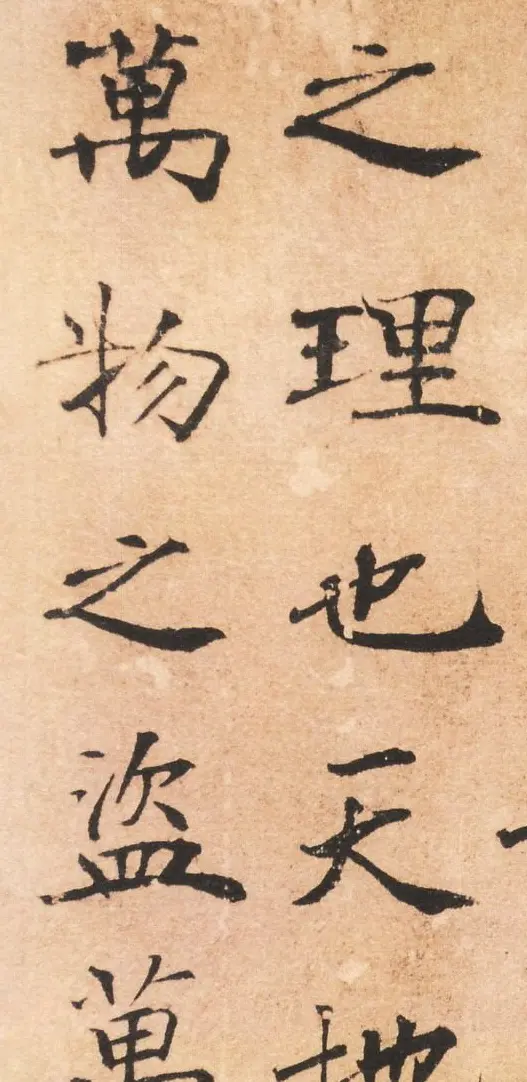 之理也天地
萬物之盜萬